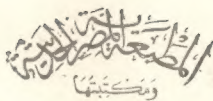 المطبعة المصرية
ومكتبتها